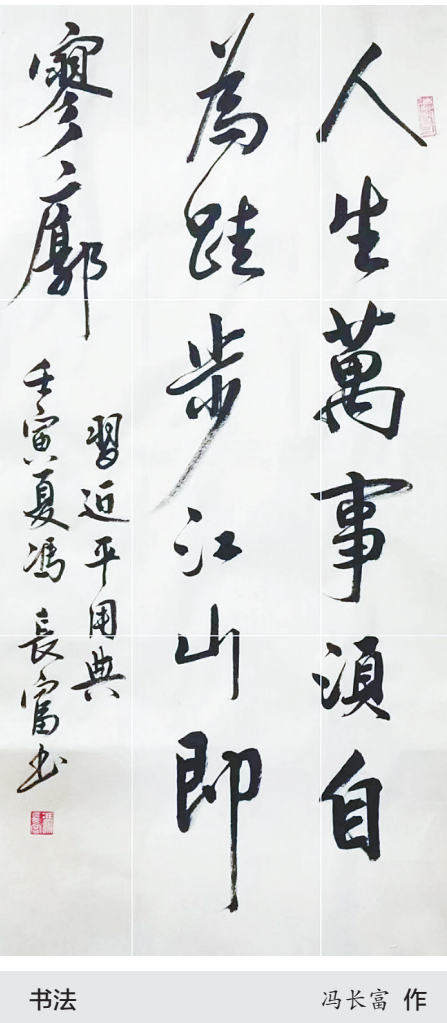 人生萬事須自
為跬步江山即
寥廓
習近平用典
壬寅夏馮長富书
书法
冯长富 作